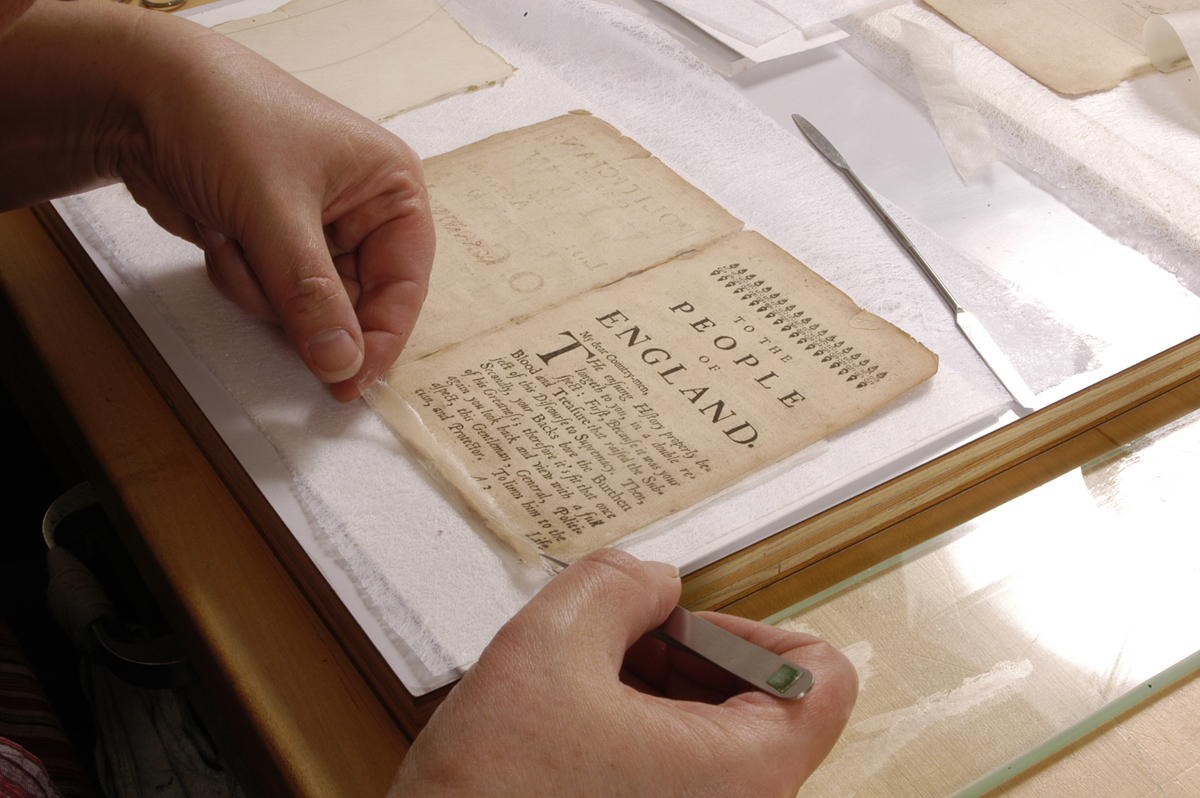 TO THE
PEOPLE
OF
ENGLAND.
My dear Country-men,
THe enſuing Hiſtory properly be-
longeth to you in a double re-
ſpect: Firſt, Becauſe it was your
Blood and Treaſure that raiſed the Sub-
ject of this Diſcourſe to Supremacy. Then,
Secondly, your Backs bore the Burthen
of his Greatneſs; therefore it's fit that once
again you look back and view with a full
aſpect, this Gentleman, General, Politi-
tian, and Protector. To limn him to the
Life